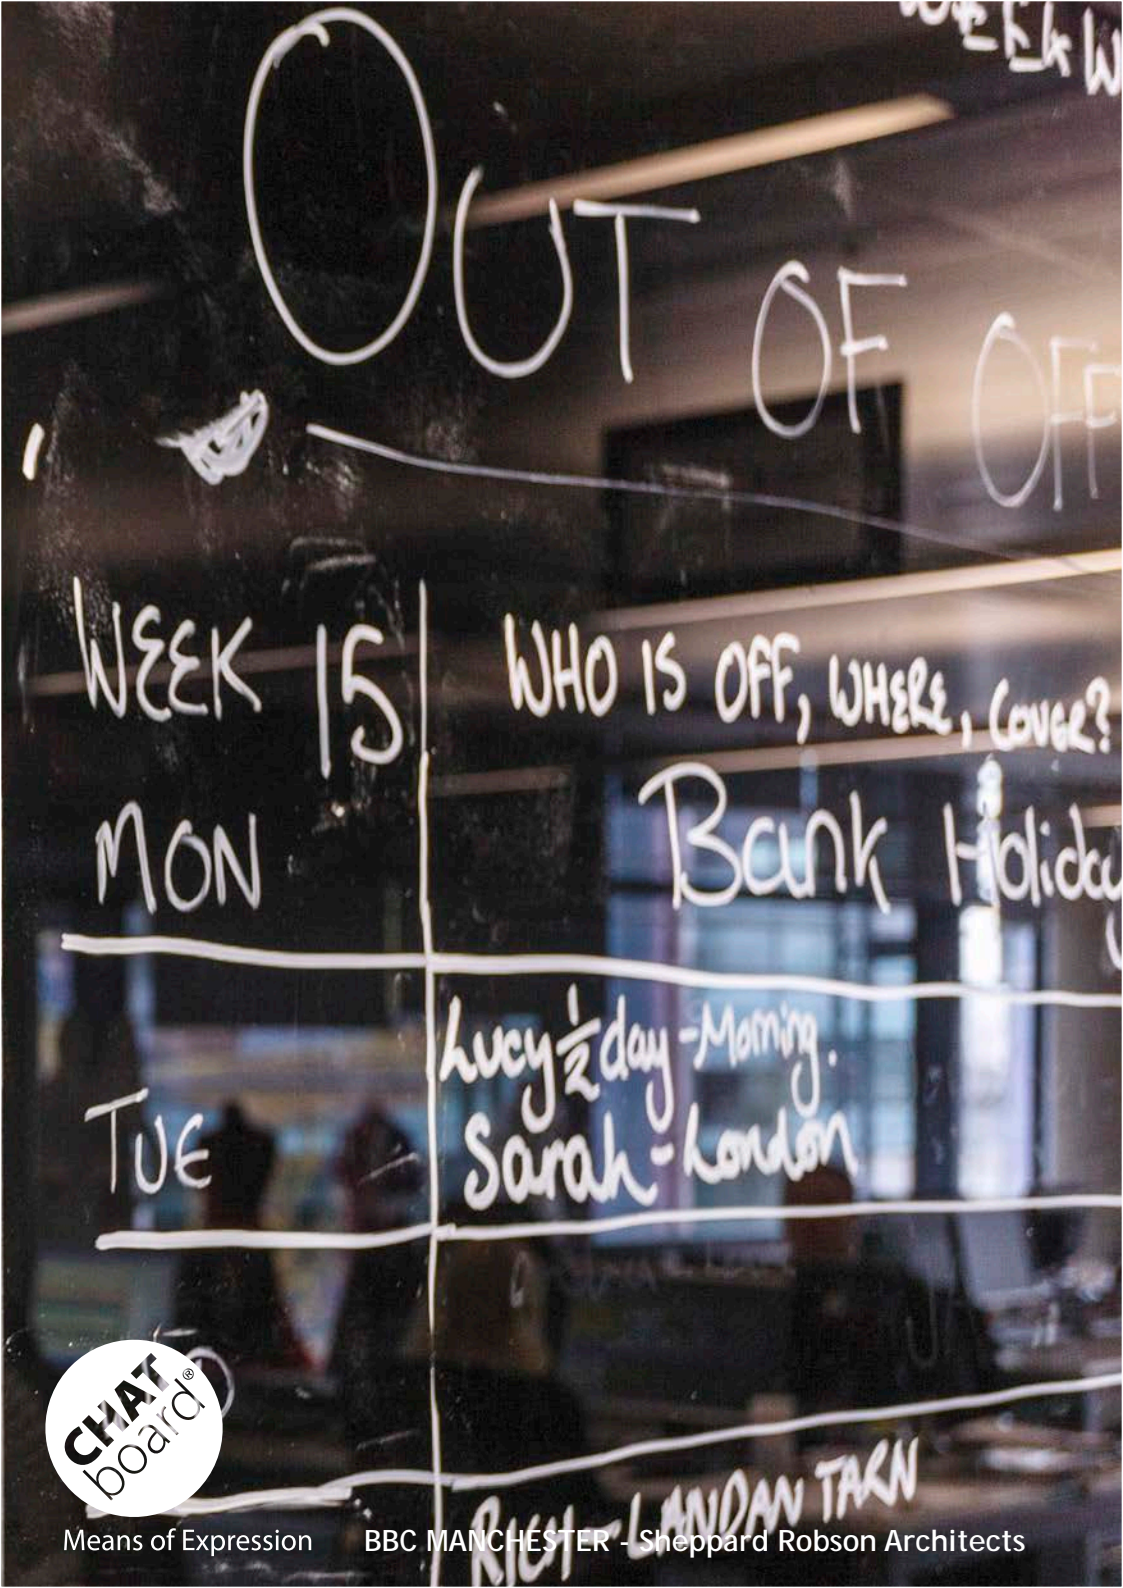 WEEK W
OUT OF OFF
WEEK 15
WHO IS OFF, WHERE, COVER?
MON
Bank Holiday
TUE
Lucy ½ day - Morning.
Sarah - London
RICH - LANDAN TARN
CHAT
board®
Means of Expression
BBC MANCHESTER - Sheppard Robson Architects